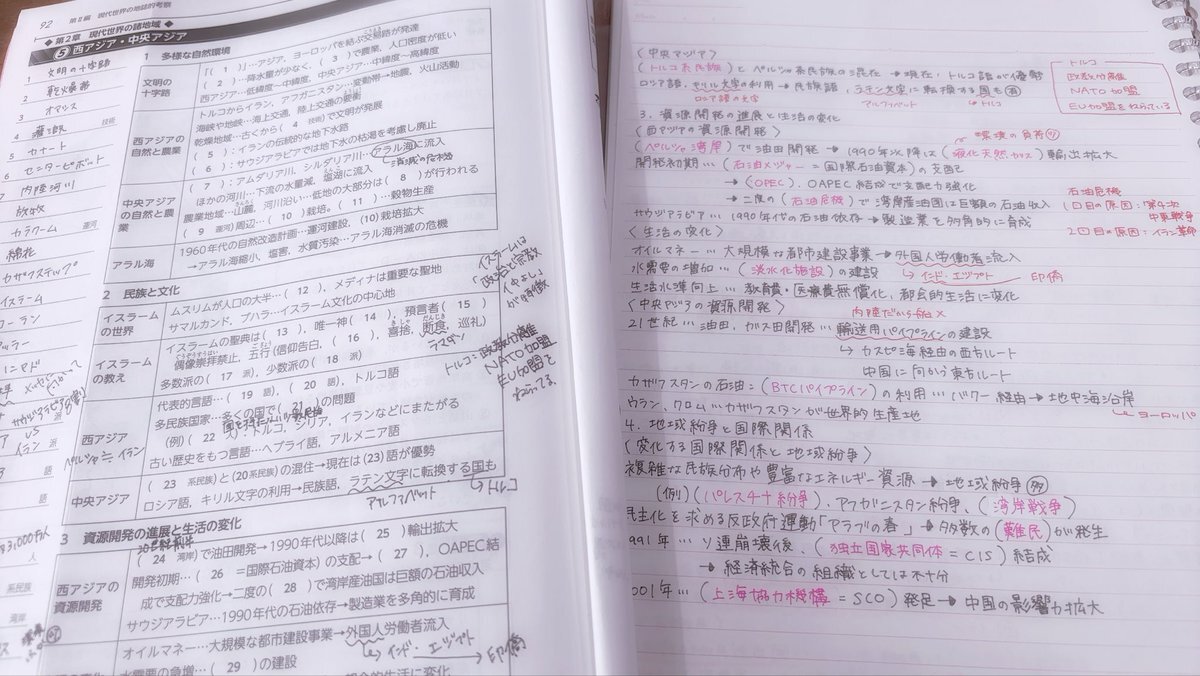 92 第Ⅱ編 現代世界の地誌的考察
◆ 第2章 現代世界の諸地域 ◆
⑤ 西アジア・中央アジア
1 文明の十字路
2 乾燥帯
3 オアシス
4 灌漑 技術
5 カナート
6 センターピボット
7 内陸河川
放牧
カラクーム 運河
綿花
カザフステップ
イスラーム
コーラン
アッラー
1 多様な自然環境
文明の十字路
「( 1 )」…アジア、ヨーロッパを結ぶ交易路が発達
( 2 )…降水量が少なく、( 3 )で農業、人口密度が低い
西アジア…低緯度~中緯度、中央アジア…中緯度~高緯度
西アジアの自然と農業
トルコからイラン、アフガニスタン…変動帯→地震、火山活動
海峡や地峡…海上交通、陸上交通の要衝
乾燥地域…古くから( 4 技術)で文明が発展
( 5 ):イランの伝統的な地下水路
( 6 ):サウジアラビアでは地下水の枯渇を考慮し廃止
中央アジアの自然と農業
( 7 ):アムダリア川、シルダリア川…アラル海に流入
消滅の危機
ほかの河川…下流の水量減、塩湖に流入
農業地域…山麓、河川沿い…低地の大部分は( 8 )が行われる
( 9 運河)周辺…( 10 )栽培。( 11 )…穀物生産
アラル海
1960年代の自然改造計画…運河建設、(10)栽培拡大
→アラル海縮小、塩害、水質汚染…アラル海消滅の危機
2 民族と文化
イスラームは政治と宗教が仲よしが特徴
イスラームの世界
ムスリムが人口の大半…( 12 )、メディナは重要な聖地
サマルカンド、ブハラ…イスラーム文化の中心地
イスラームの教え
イスラームの聖典は( 13 )、唯一神( 14 )、預言者( 15 )
偶像崇拝禁止、五行(信仰告白、( 16 )、喜捨、断食、巡礼)
ラマダン
多数派の( 17 派)、少数派の( 18 派)
トルコ:政教分離
NATO加盟
EU加盟をねらってる。
西アジア
代表的言語…( 19 語)、( 20 語)、トルコ語
多民族国家…多くの国で( 21 )の問題
(例)( 22 人):トルコ、シリア、イランなどにまたがる
ペルシャ=イラン
古い歴史をもつ言語…ヘブライ語、アルメニア語
中央アジア
( 23 系民族)と(20系民族)の混住→現在は(23)語が優勢
ロシア語、キリル文字の利用→民族語、ラテン文字に転換する国も
アルファベット
トルコ
3 資源開発の進展と生活の変化
西アジアの資源開発
( 24 湾岸)で油田開発→1990年代以降は( 25 )輸出拡大
開発初期…( 26 =国際石油資本)の支配→( 27 )、OAPEC結成で支配力強化→二度の( 28 )で湾岸産油国は巨額の石油収入
サウジアラビア…1990年代の石油依存→製造業を多角的に育成
オイルマネー…大規模な都市建設事業→外国人労働者流入
インド・エジプト→印僑
水需要の急増…( 29 )の建設
〈中央アジア〉
(トルコ系民族)とペルシャ系民族の混在→現在、トルコ語が優勢
ロシア語、キリル文字の利用→民族語、ラテン文字に転換する国も有
ロシア語の文字
アルファベット
トルコ
トルコ
政教分離
NATO加盟
EU加盟をねらっている
3. 資源開発の進展と生活の変化
〈西アジアの資源開発〉
環境の負荷少
(ペルシャ湾岸)で油田開発→1990年次降は(液化天然ガス)輸出拡大
開発初期…(石油メジャー=国際石油資本)の支配
→(OPEC)、OAPEC結成で支配力強化
→二度の(石油危機)で湾岸産油国は巨額の石油収入
石油危機
1回目の原因:第4次中東戦争
2回目の原因:イラン革命
サウジアラビア…1990年代の石油依存→製造業を多角的に育成
〈生活の変化〉
オイルマネー…大規模な都市建設事業→外国人労働者流入
インド・エジプト 印僑
水需要の増加…(淡水化施設)の建設
生活水準向上…教育費・医療費無償化、都会的生活に変化
〈中央アジアの資源開発〉
内陸だから船×
21世紀…油田、ガス田開発…輸送用パイプラインの建設
カスピ海経由の西方ルート
中国に向かう東方ルート
カザフスタンの石油:(BTCパイプライン)の利用…バクー経由→地中海沿岸
ヨーロッパ
ウラン、クロム…カザフスタンが世界的生産地
4. 地域紛争と国際関係
〈変化する国際関係と地域紛争〉
複雑な民族分布や豊富なエネルギー資源→地域紛争多
(例)(パレスチナ紛争)、アフガニスタン紛争、(湾岸戦争)
民主化を求める反政府運動「アラブの春」→多数の(難民)が発生
991年…ソ連崩壊後、(独立国家共同体=CIS)結成
→経済統合の組織としては不十分
001年…(上海協力機構=SCO)発足→中国の影響力拡大